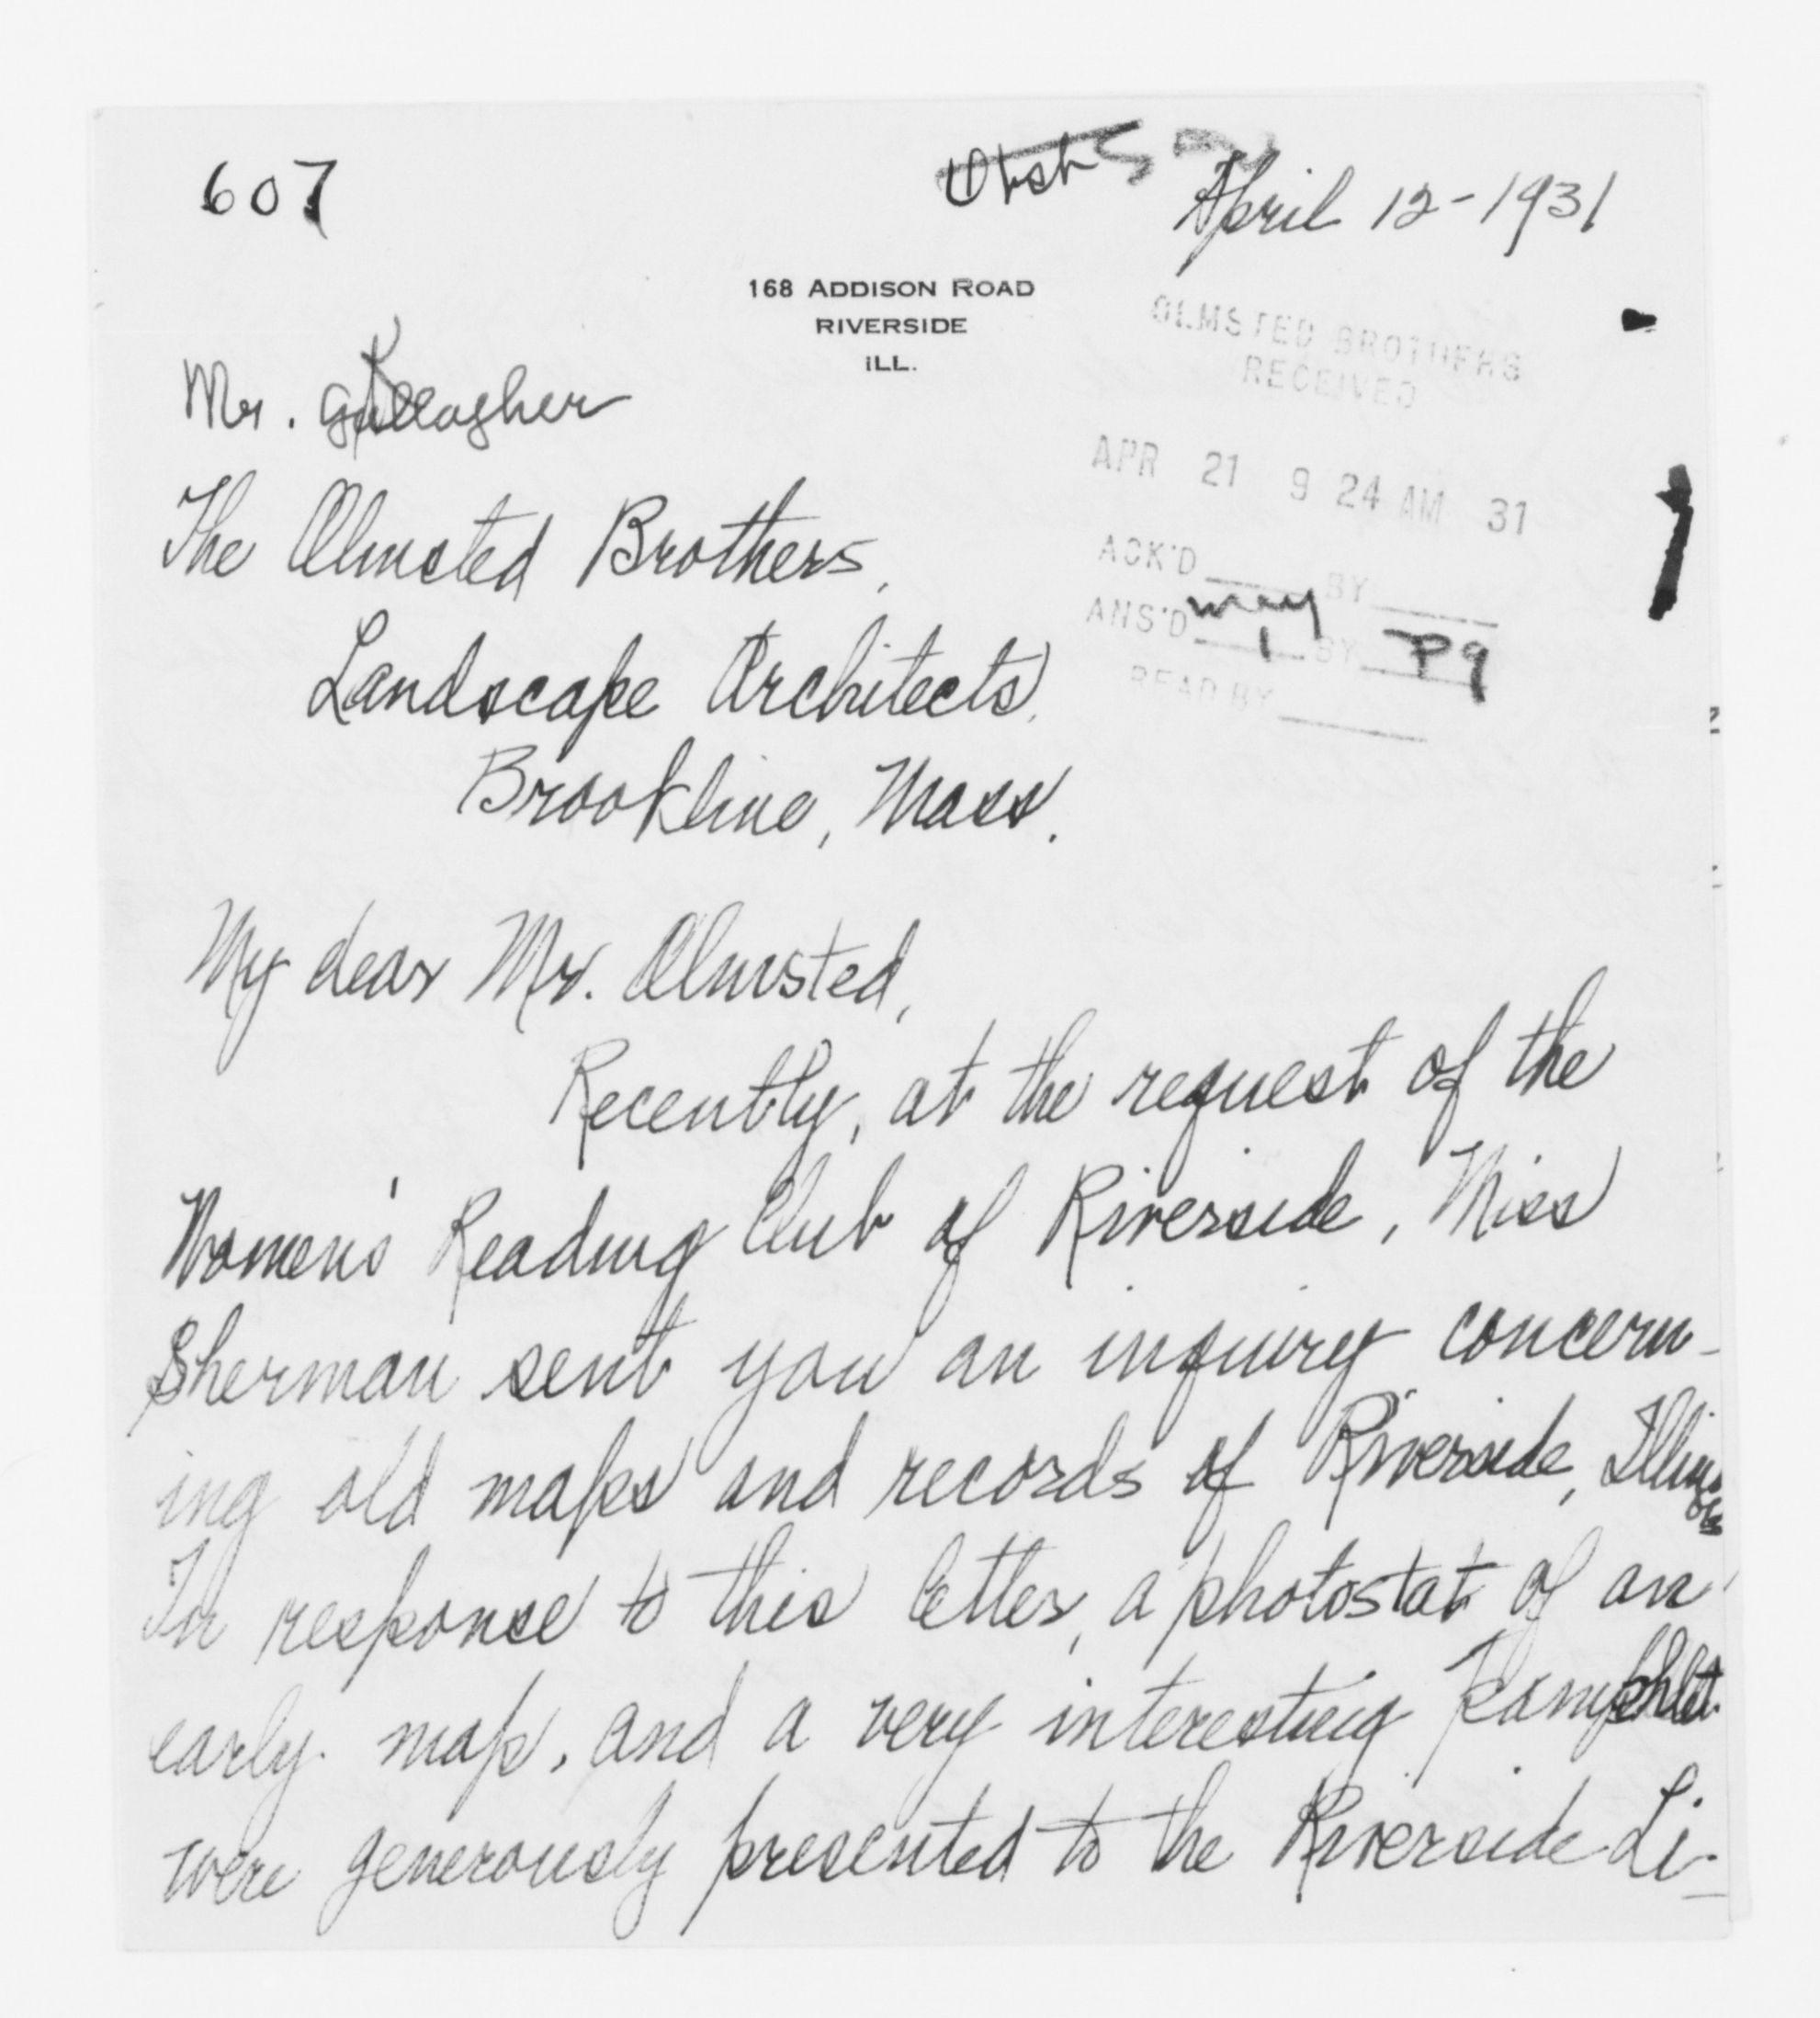 607
April 12-1931
168 ADDISON ROAD
RIVERSIDE
ILL.
OLMSTED BROTHERS
RECEIVED
Mr. Gallagher
APR 21 9 24 AM 31
The Olmsted Brothers,
ACK'D BY
ANS'D May 1 BY P9
Landscape Architects,
READ BY
Brookline, Mass.
My dear Mr. Olmsted,
Recently, at the request of the
Women's Reading Club of Riverside, Miss
Sherman sent you an inquiry concern-
ing old maps and records of Riverside, Illinois
In response to this letter, a photostat of an
early map, and a very interesting pamphlet
were generously presented to the Riverside Li-